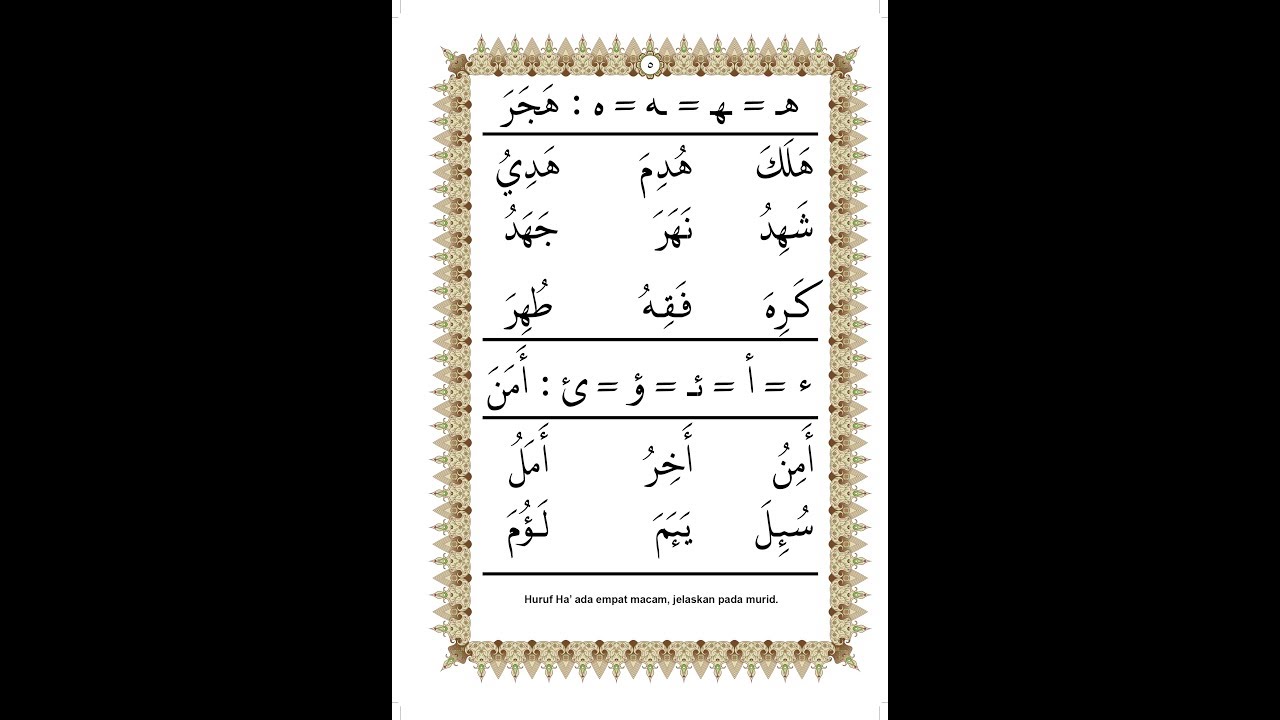 ٥
هـ = ـهـ = ـه = ه : هَجَرَ
هَلَكَ هُدِمَ هَدِيُ
شَهِدُ نَهَرَ جَهَدُ
كَرِهَ فَقِهُ طُهِرَ
ء = أ = ئـ = ؤ = ئ : أَمَنَ
أَمِنُ أَخِرُ أَمَلُ
سُئِلَ يَئِمَ لَؤُمَ
Huruf Ha' ada empat macam, jelaskan pada murid.